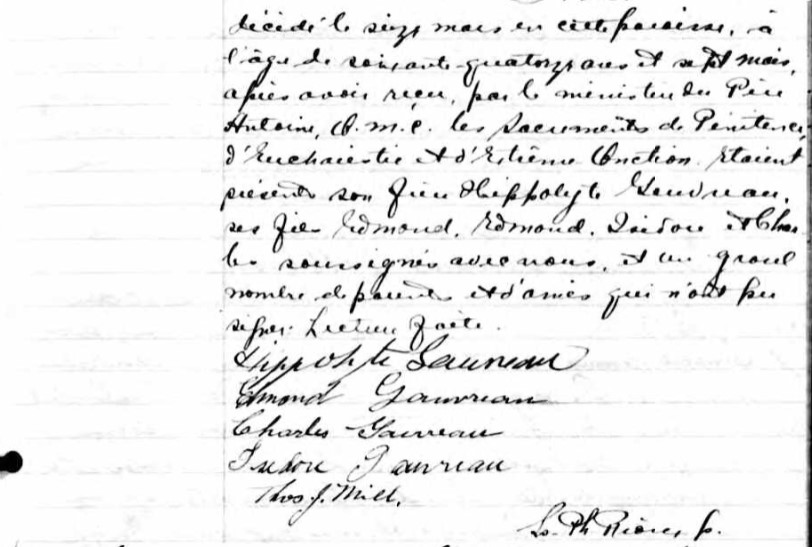 décédé le seize mars en cette paroisse, à
l'âge de soixante-quatorze ans et sept mois,
après avoir reçu, par le ministère du Père
Antoine, O.M.C. les Sacrements de Pénitence,
d'Eucharistie et d'Extrême Onction. Etaient
présents son frère Hippolyte Gauvreau,
ses fils Edmond, Edmond, Isidore et Char-
les soussignés avec nous, et un grand
nombre de parents et d'amis qui n'ont pu
signer. Lecture faite.
Hippolyte Gauvreau
Edmond Gauvreau
Charles Gauvreau
Isidore Gauvreau
Thos J. Mill.
Ph